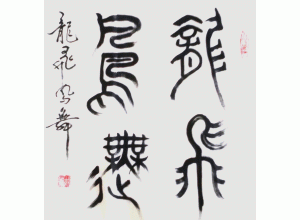 龍飛
鳳舞
龍飛鳳舞